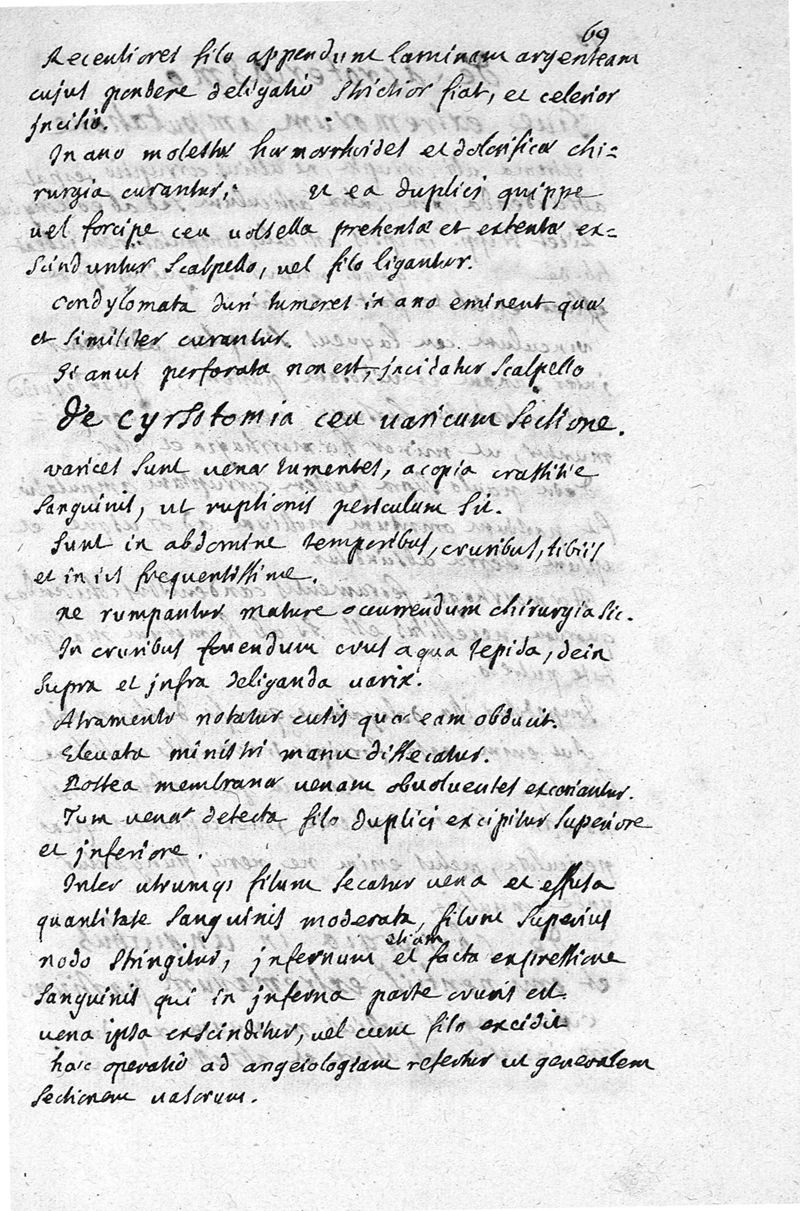 69
Recentiores filo appendunt laminam argenteam
cujus pondere deligatio strictior fiat, et celerior
incisio.
In ano molestæ hæmorrhoides et dolorificæ chi=
rurgia curantur, ut ea duplici quippe
vel forcipe ceu volsella prehentæ et extentæ ex=
scinduntur scalpello, vel filo ligantur.
Condylomata duri tumores in ano eminent quæ
et similiter curantur.
Si anus perforata non est, incidatur scalpello
De cyrsotomia ceu varicum sectione.
varices sunt venæ tumentes, a copia crassitie
sanguinis, ut ruptionis periculum sit.
Sunt in abdomine temporibus, cruribus, tibiis
et in iis frequentissime.
ne rumpantur mature occurrendum chirurgia sic.
In cruribus fovendum crus aqua tepida, dein
supra et infra deliganda varix.
Atramento notatur cutis quæ eam obducit.
Elevata ministri manu dissecatur.
Postea membranæ venam obvolventes excoriantur.
Tum vena detecta filo duplici excipitur superiore
et inferiore.
Inter utrumqs filum secatur vena et effusa
quantitate sanguinis moderata, filum superius
nodo stringitur, infernum etiam et facta expressione
sanguinis qui in inferna parte cruris est.
vena ipsa exscinditur, vel cum filo excidit
hæc operatio ad angeiologiam refertur ut generalem
sectionem vasorum.